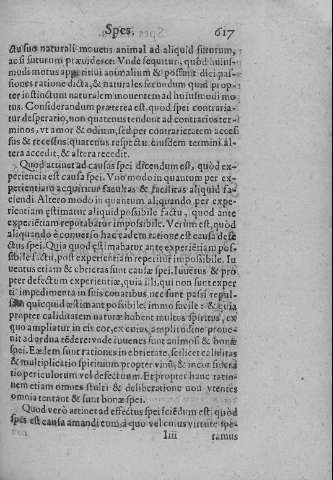 Spes. 617
ctu suo naturali mouens animal ad aliquid futurum,
ac si futurum præuideset. Vnde sequitur, quòd huius-
modi motus appetitiui animalium & possunt dici pas-
siones ratione dicta, & naturales secundum quid prop-
ter instinctum naturalem mouentem ad huiusmodi mo
tus. Considerandum præterea est, quod spei contraria-
tur desperatio, non quatenus tendunt ad contrarios ter-
minos, vt amor & odium, sed per contrarietatem accesi
sus & recessus, quatenus respectu eiusdem termini al-
tera accedit, & altera recedit.
Quod attinet ad causas spei dicendum est, quòd ex-
periencia est causa spei. Vno modo in quantum per ex-
perientiam acquiritur facultas & facilitas aliquid fa-
ciendi. Altero modo in quantum aliquando per experi-
entiam æstimatur aliquid possibile factu, quod ante
experiētiam reputabatur impossibile. Verùm est, quòd
aliquando è conuerso hac eadem ratione est causa defe
ctus spei. Quia quod æstimabatur ante experiētiam pos-
sibile factu, post experientiam reperitur impossibile. Iu
uentus etiam & ebrietas sunt causæ spei. Iuuētus & pro
pter defectum experientiæ, quia illi, qui non sunt exper
ti impedimenta in suis conatibus, nec sunt passi repul-
sam quicquid æstimant possibile immo facile: & quia
propter caliditatem naturæ habent multos spiritus, ex
quo ampliatur in eis cor, ex cuius amplitudine proue-
nit ad ardua tēdere: vnde iuuenes sunt animosi & bonæ
spei. Eædem sunt rationes in ebrietate, scilicet caliditas
& multiplicatio spirituum propter vinū, & inconsidera
tio periculorum vel defectuum. Et propter hanc ratio-
nem etiam omnes stulti & deliberatione non vtentes
omnia tentant & sunt bonæ spei.
Quod verò attinet ad effectus spei sciēdum est, quòd
spes est causa amandi eum, à quo vel cuius virtute spe-
Iiii ramus